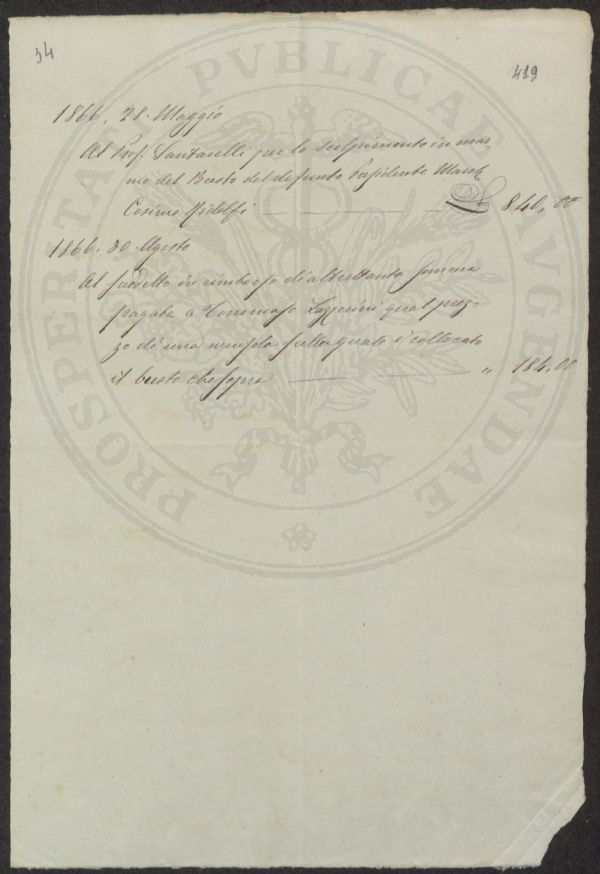 34
419
1866. 28. Maggio
Al Prof. Santarelli per lo scolpimento in mar-
mo del Busto del defunto Presidente March.
Cosimo Ridolfi 840,00
1866. 30 Agosto
Al suddetto in rimborso di altrettanta somma
pagata a Tommaso Lazzerini qual prez-
zo di una mensola sulla quale è collocato
il busto che sopra " 184,00
PROSPERITATI PVBLICAE AVGENDAE